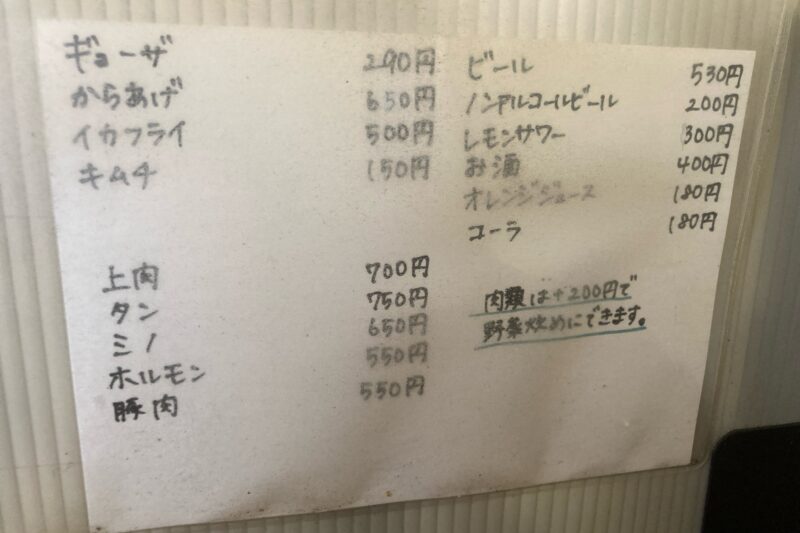 ギョーザ 290円
からあげ 650円
イカフライ 500円
キムチ 150円
上肉 700円
タン 750円
ミノ 650円
ホルモン 550円
豚肉 550円
ビール 530円
ノンアルコールビール 200円
レモンサワー 300円
お酒 400円
オレンジジュース 180円
コーラ 180円
肉類は+200円で
野菜炒めにできます。